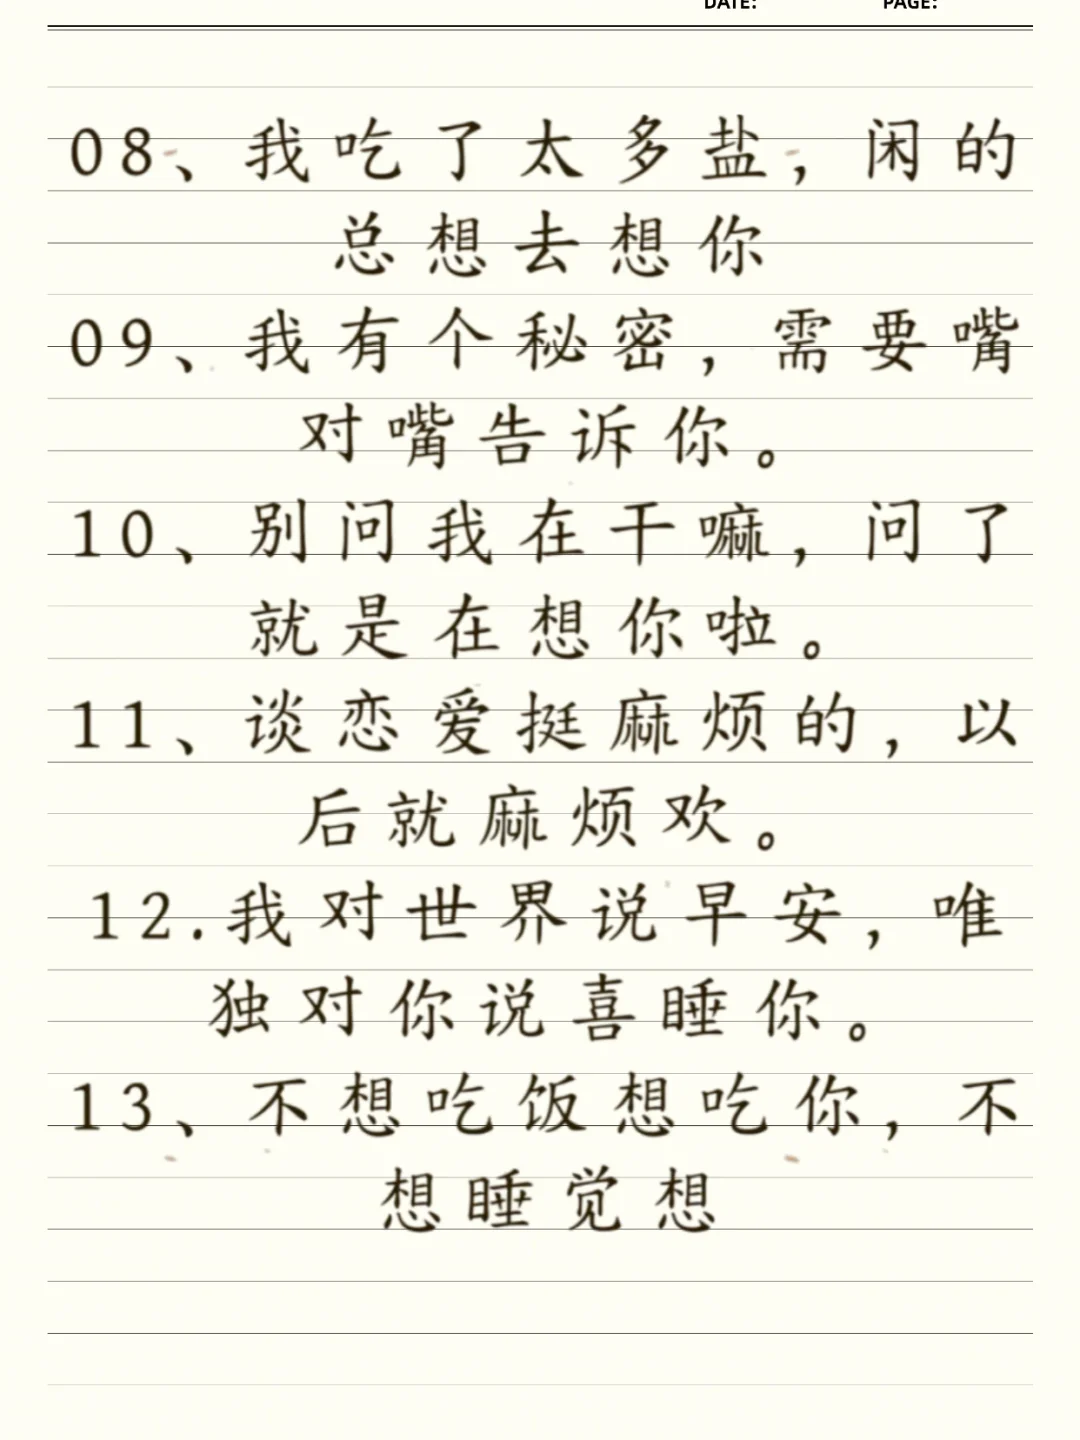 DATE: PAGE:
08、我吃了太多盐，闲的
总想去想你
09、我有个秘密，需要嘴
对嘴告诉你。
10、别问我在干嘛，问了
就是在想你啦。
11、谈恋爱挺麻烦的，以
后就麻烦欢。
12.我对世界说早安，唯
独对你说喜睡你。
13、不想吃饭想吃你，不
想睡觉想